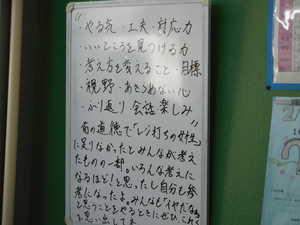 "
・やる気・工夫・対応力
・いいところを見つける力
・考え方を変えること・目標
・視野・あきらめない心
・ふり返り 会話 楽しみ
"
前の道徳で「レジ打ちの女性」
に足りなかったとみんなが考え
たものの一部。いろんな考えに
なるほど!と思ったし自分も参
考になったよ。みんなも「イヤだなぁ」
と思うことをやるときにぜひ、これ
を思い出して